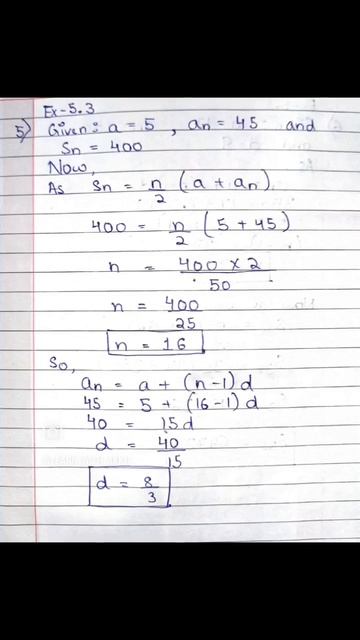 Ex-5.3
5) Given: a = 5 , an = 45 and
Sn = 400
Now,
As Sn = n/2 (a + an)
400 = n/2 (5 + 45)
n = 400 × 2/50
n = 400/25
n = 16
So,
an = a + (n-1)d
45 = 5 + (16-1)d
40 = 15d
d = 40/15
d = 8/3